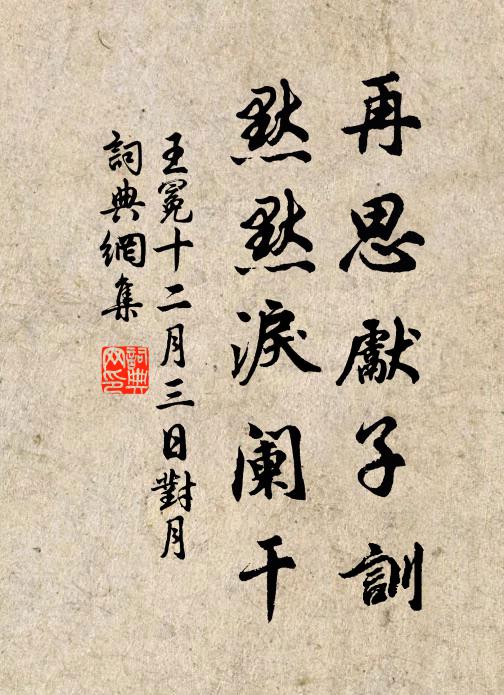 再思獻子訓
默默淚闌干
王冕十二月三日對月
詞典網集
詞典網印